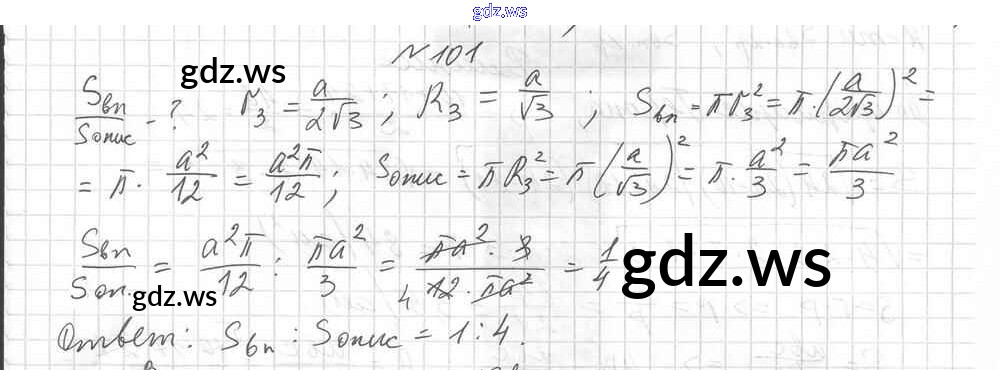 gdz.ws
N 101
gdz.ws
Sвп/Sопис - ? r₃ = a/2√3 ; R₃ = a/√3 ; Sвп = πr₃² = π·(a/2√3)² =
= π · a²/12 = a²π/12 ; Sопис = πR₃² = π(a/√3)² = π · a²/3 = πa²/3
Sвп/Sоп. = a²π/12 : πa²/3 = πa² · 3/4 12 · πa² = 1/4
gdz.ws
gdz.ws
Ответ: Sвп : Sопис = 1 : 4.